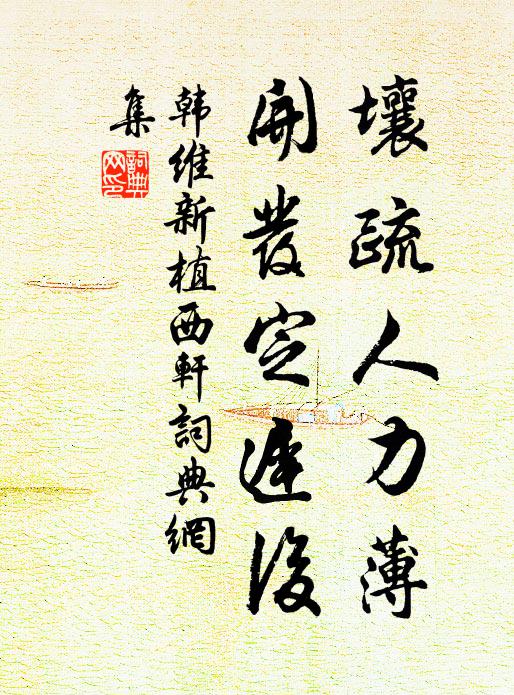 壤疏人力薄
開發定遲後
韩維新植西軒詞典網
集
詞典
网印